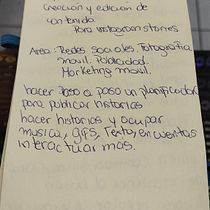 Creación y edición de
contenido
Para instagram stories
Area: Redes sociales, fotografia
movil, Publicidad.
Marketing movil.
hacer paso a paso un planificador
para publicar historias
hacer historias y ocupar
musica, gifs, Texto, encuentas
interactuar mas.